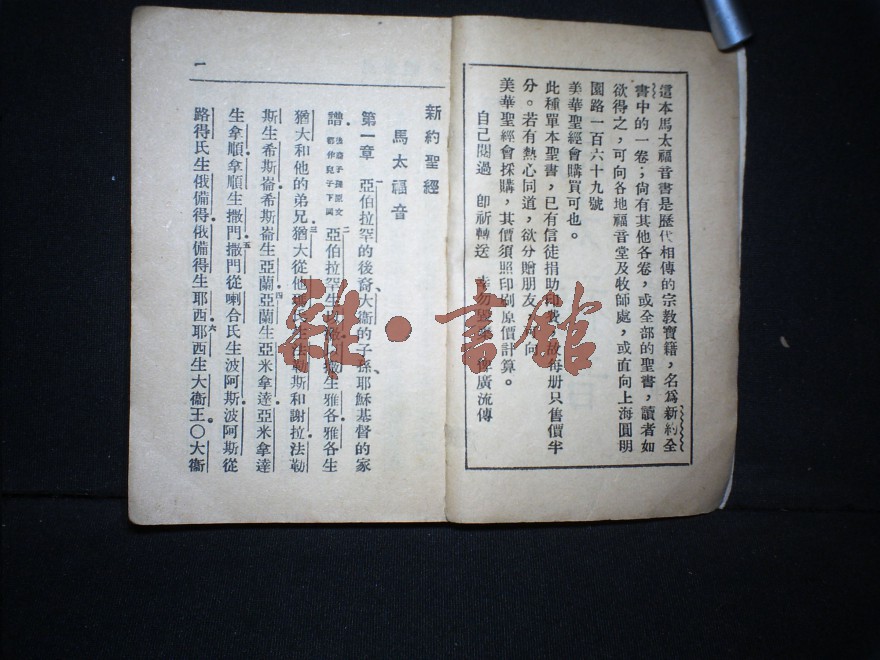 這本馬太福音書是歷代相傳的宗教寶籍，名爲新約全
書中的一卷；尙有其他各卷，或全部的聖書，讀者如
欲得之，可向各地福音堂及牧師處，或直向上海圓明
園路一百六十九號
美華聖經會購買可也。
此種單本聖書，已有信徒捐助印費，故每册只售價半
分。若有熱心同道，欲分贈朋友，可向
美華聖經會採購，其價須照印刷原價計算。
自己閱過 卽祈轉送 幸勿毀棄 廣流傳
新約聖經
馬太福音
第一章 亞伯拉罕的後裔、大衞的子孫、耶穌基督的家
譜。後裔子孫原文都作兒子下同 二 亞伯拉罕生以撒以撒生雅各雅各生
猶大和他的弟兄三猶大從他瑪氏生法勒斯和謝拉法勒
斯生希斯崙希斯崙生亞蘭四亞蘭生亞米拿達亞米拿達
生拿順拿順生撒門五撒門從喇合氏生波阿斯波阿斯從
路得氏生俄備得俄備得生耶西六耶西生大衞王〇大衞
一
雜·書館